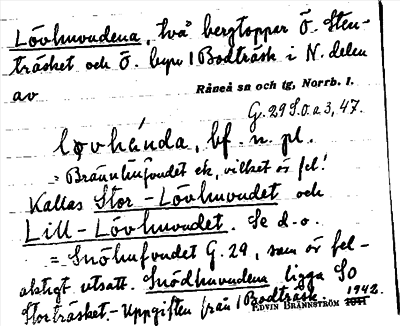 Lövhuvudena, två bergtoppar Ö. Sten-
träsket och Ö. byn i Bodträsk i N. delen
av
Råneå sn och tg, Norrb. l.
G. 29 S.o.a 3, 47.
bf. n. pl.
= Brännhufvudet ek, vilket är fel!
Kallas Stor-Lövhuvudet och
Lill-Lövhuvudet. Se d.o.
= Snöhufvudet G. 29, som är fel-
aktigt utsatt. Snödhuvudena ligga SO
Storträsket.- Uppgiften från i Bodträsk.
1942.
EDVIN BRÄNNSTRÖM